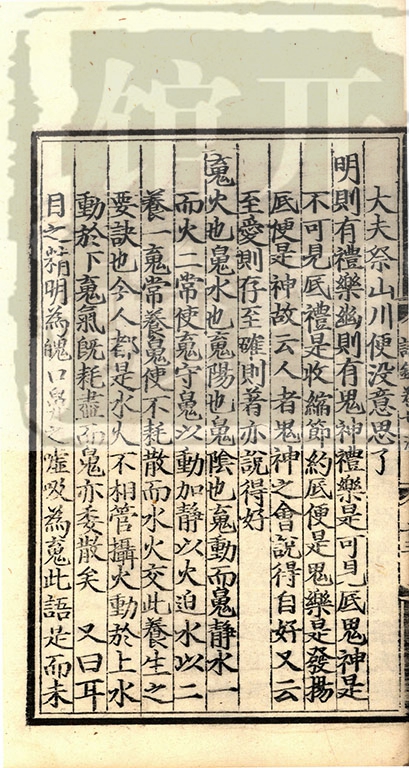 大夫祭山川便没意思了
明則有禮樂幽則有鬼神禮樂是可見底鬼神是
不可見底禮是收縮節約底便是鬼樂是發揚
底便是神故云人者鬼神之會說得自好又云
至愛則存至確則著亦說得好
䰟火也鬽水也䰟陽也鬽陰也䰟動而鬽静水一
而火二常使䰟守鬽以動加静以火迫水以二
養一䰟常養鬽使不耗散而水火交此養生之
要訣也今人都是水火不相管攝火動於上水
動於下䰟氣既耗盡而鬽亦委散矣 又曰耳
目之精明為魄口鼻之嘘吸為䰟此語是而未